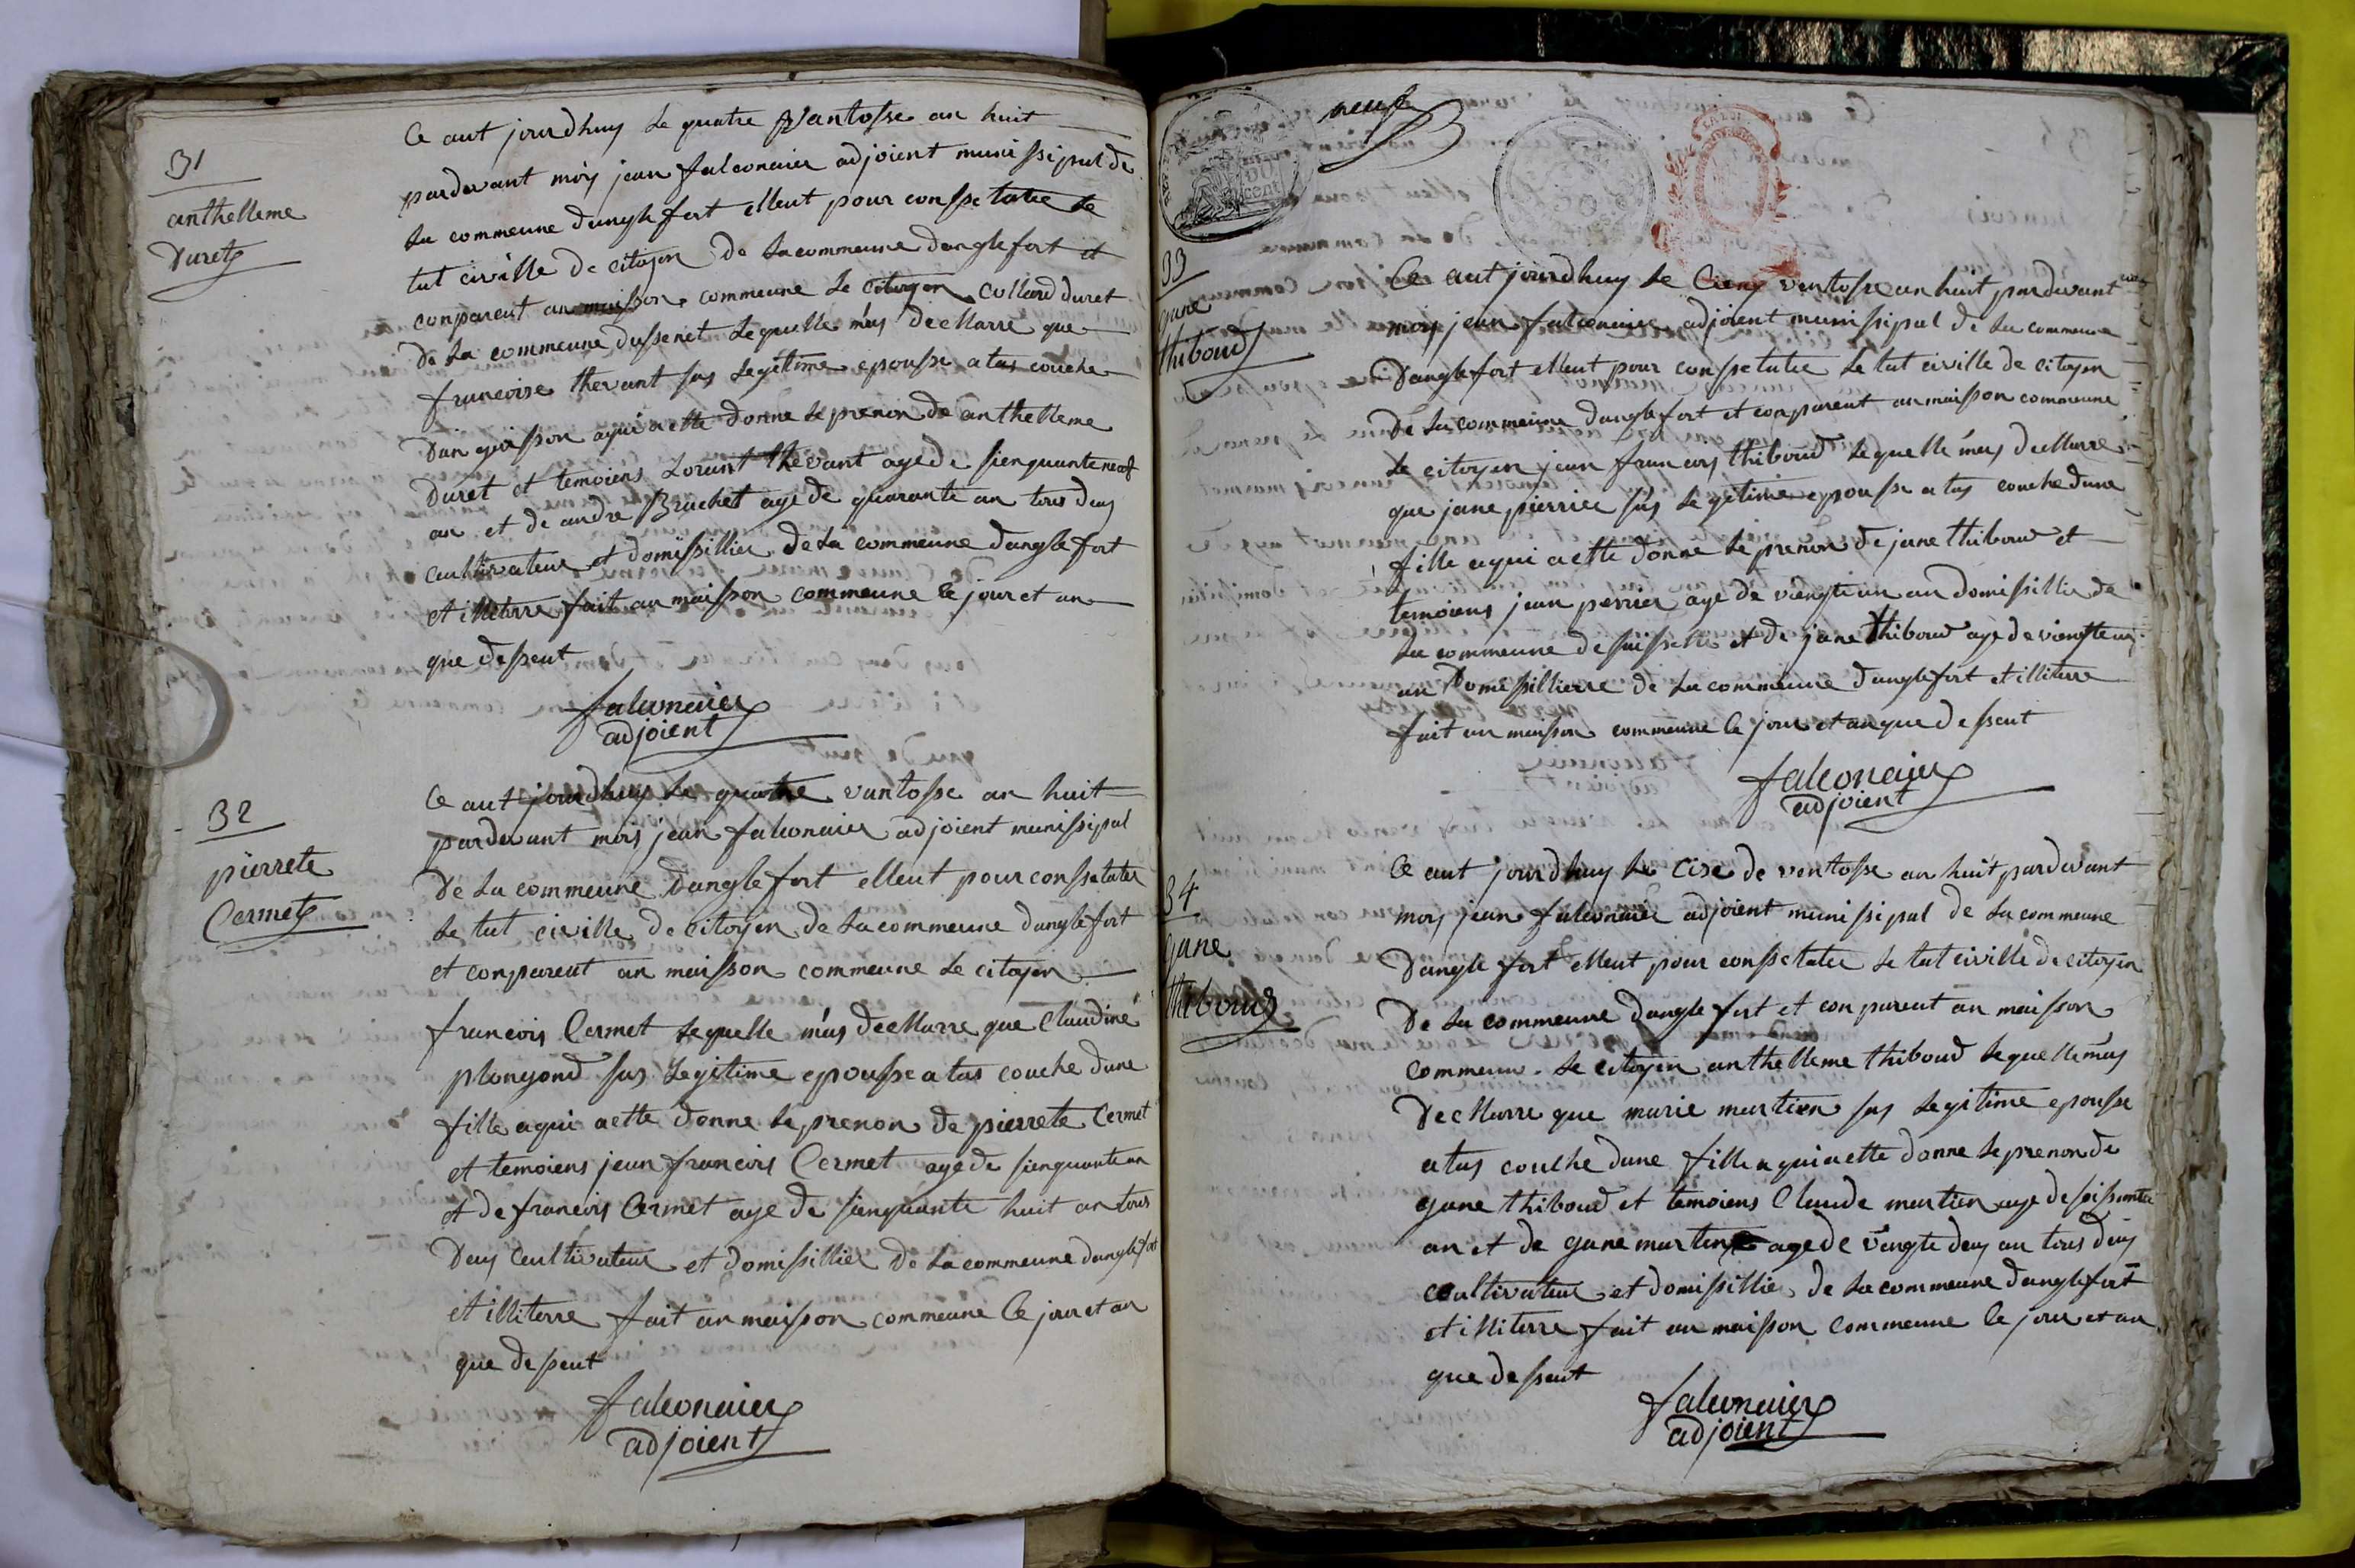 31
anthelleme
Duret
Ce aut jourdhuy le quatre vantosse an huit
pardevant moy jean falconaier adjoient munissipal de
la commeune danglefort elleut pour conssetatue le
tut civille de citoyen de la commeune danglefort et
conpareut au maisson commeune le citoyen Collard duret
de la commeune dussenet lequelle m'as decllarre que
francoise thevant sas legitime epousse a tas couche
d'un guarsson a qui a ette donne le prenon de anthelleme
Duret et temoiens Lorant thevant age de sienquante neof
an et de andre Bruchet age de quarante an tous deuy
cultivateur et domissillier de la commeune danglefort
et illiterre fait au maisson commeune le jour et an
que desseut
falconaier
adjoient
32
pierrete
Cermet
Ce aut jourdhuy le quatre vantosse an huit
pardevant mois jean falconaier adjoient munissipal
De la commeune Danglefort elleut pour conssetater
le tut civille de citoyen de la commeune danglefort
et conpareut au maisson commeune le citoyen
francois Cermet lequelle m'as decllarre que Claudine
plongeond sas legitime epousse a tas couche dune
fille a qui a ette donne le prenon de pierrete Cermet
et temoiens jean francois Cermet age de sienquante an
et de francois Cermet age de sienquante huit an tous
Deuy Ceultivateur et domissillier de la commeune danglefort
et illiterre fait au maisson commeune le jour et an
que desseut
falconaier
adjoient
neuf
33
gane
thiboud
Ce aut jourdhuy le Cienq ventosse an huit pardevant
moy jean falconaier adjoient munissipal de la commeune
Danglefort elleut pour conssetatue le tut civille de citoyen
De la commeune danglefort et conpareut au maisson commeune
le citoyen jean francois thiboud lequelle m'as decllarre
que jane pierrier sas legitime epousse a tas couche dune
fille a qui a ette donne le prenon de jane thiboud et
temoiens jean perrier age de viengt an domissillie de
la commeune de suissell et de jane thiboud age de
an Domissillierre de la commeune danglefort et illiterre
fait au maisson commeune le jour et an que desseut
falconaier
adjoient
34
gane
thiboud
Ce aut jourdhuy le Cise de ventosse an huit pardevant
moy jean falconaier adjoient munissipal de la commeune
Danglefort elleut pour conssetatue le tut civille de citoyen
De la commeune danglefort et conpareut au maisson
commeune le citoyen anthelleme thiboud lequelle m'as
Decllarre que marie martien sas legitime epousse
a tas couche dune fille a qui a ette donne le prenon de
gane thiboud et temoiens Claude martien age de soissante
an et de gane martien age de viengte deuy an tous deuy
ceultivateur et domissillie de la commeune danglefort
et illiterre fait au maisson commeune le jour et an
que desseut
falconaier
adjoient